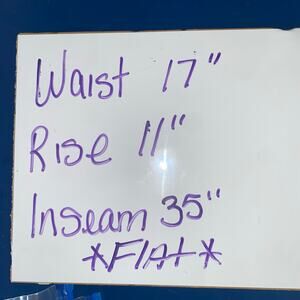 Waist 17"
Rise 11"
Inseam 35"
*Flat*